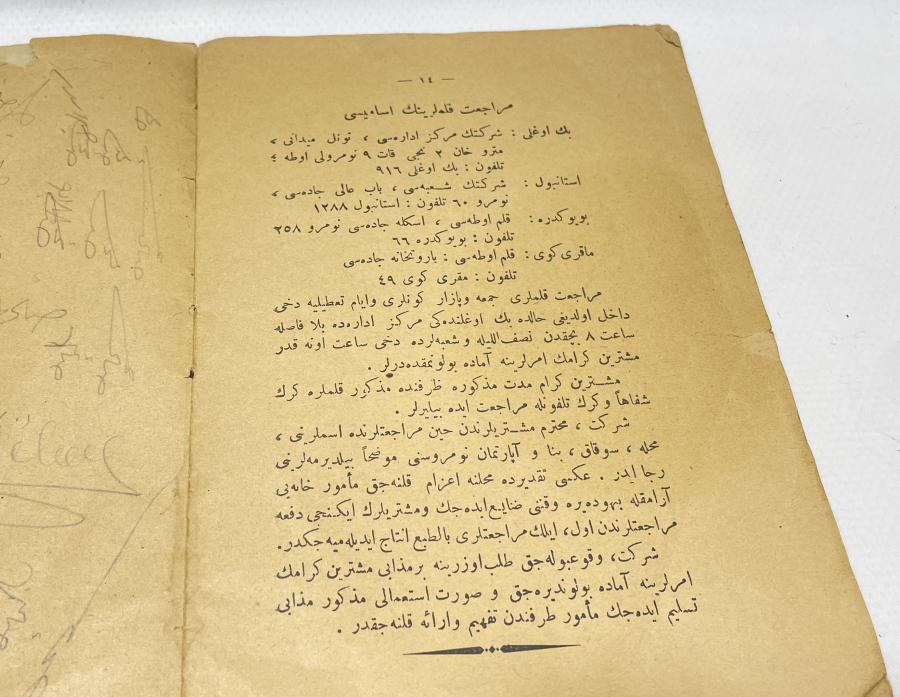 — ١٤ —
مراجعت قلملرينك اساميسى
بك اوغلى : شركتك مركز اداره‌سى ، تونل ميدانى ،
مترو خان ٢ نجى قات ٩ نومرولى اوطه ٤
تلفون : بك اوغلى ٩١٦
استانبول : شركتك شعبه‌سى ، باب عالى جاده‌سى ،
نومرو ٦٠ تلفون : استانبول ١٢٨٨
بويوكدره : قلم اوطه‌سى ، اسكله جاده‌سى نومرو ٢٥٨
تلفون : بويوكدره ٦٦
ماقرى كوى : قلم اوطه‌سى : باروتخانه جاده‌سى
تلفون : مقرى كوى ٤٩
مراجعت قلملرى جمعه وپازار كونلرى وايام تعطيليه دخى
داخل اولديغى حالده بك اوغلنده‌كى مركز اداره‌ده بلا فاصله
ساعت ٨ بچقدن نصف‌الليله و شعبه‌لرده دخى ساعت اونه قدر
مشترين كرامك امرلرينه آماده بولونمقده‌درلر .
مشترين كرام مدت مذكوره ظرفنده مذكور قلملره كرك
شفاهاً وكرك تلفونله مراجعت ايده بيليرلر .
شركت ، محترم مشتريلرندن حين مراجعتلرنده اسملرينى ،
محله ، سوقاق ، بنا و آپارتمان نومروسنى موضحاً بيلديرمه‌لرينى
رجا ايدر . عكسى تقديرده محلنه اعزام قلنه‌جق مأمور خانه‌يى
آرامقله بيهوده‌يره وقتنى ضايع‌ايده‌جك ومشتريلرك ايكينجى دفعه
مراجعتلرندن اول، ايلك مراجعتلرى بالطبع انتاج ايديله‌ميه‌جكدر.
شركت، وقوعبوله‌جق طلب‌اوزرينه برمذابى مشترين كرامك
امرلرينه آماده بولونديره‌جق و صورت استعمالى مذكور مذابى
تسليم ايده‌جك مأمور طرفندن تفهيم وارائه قلنه‌جقدر .